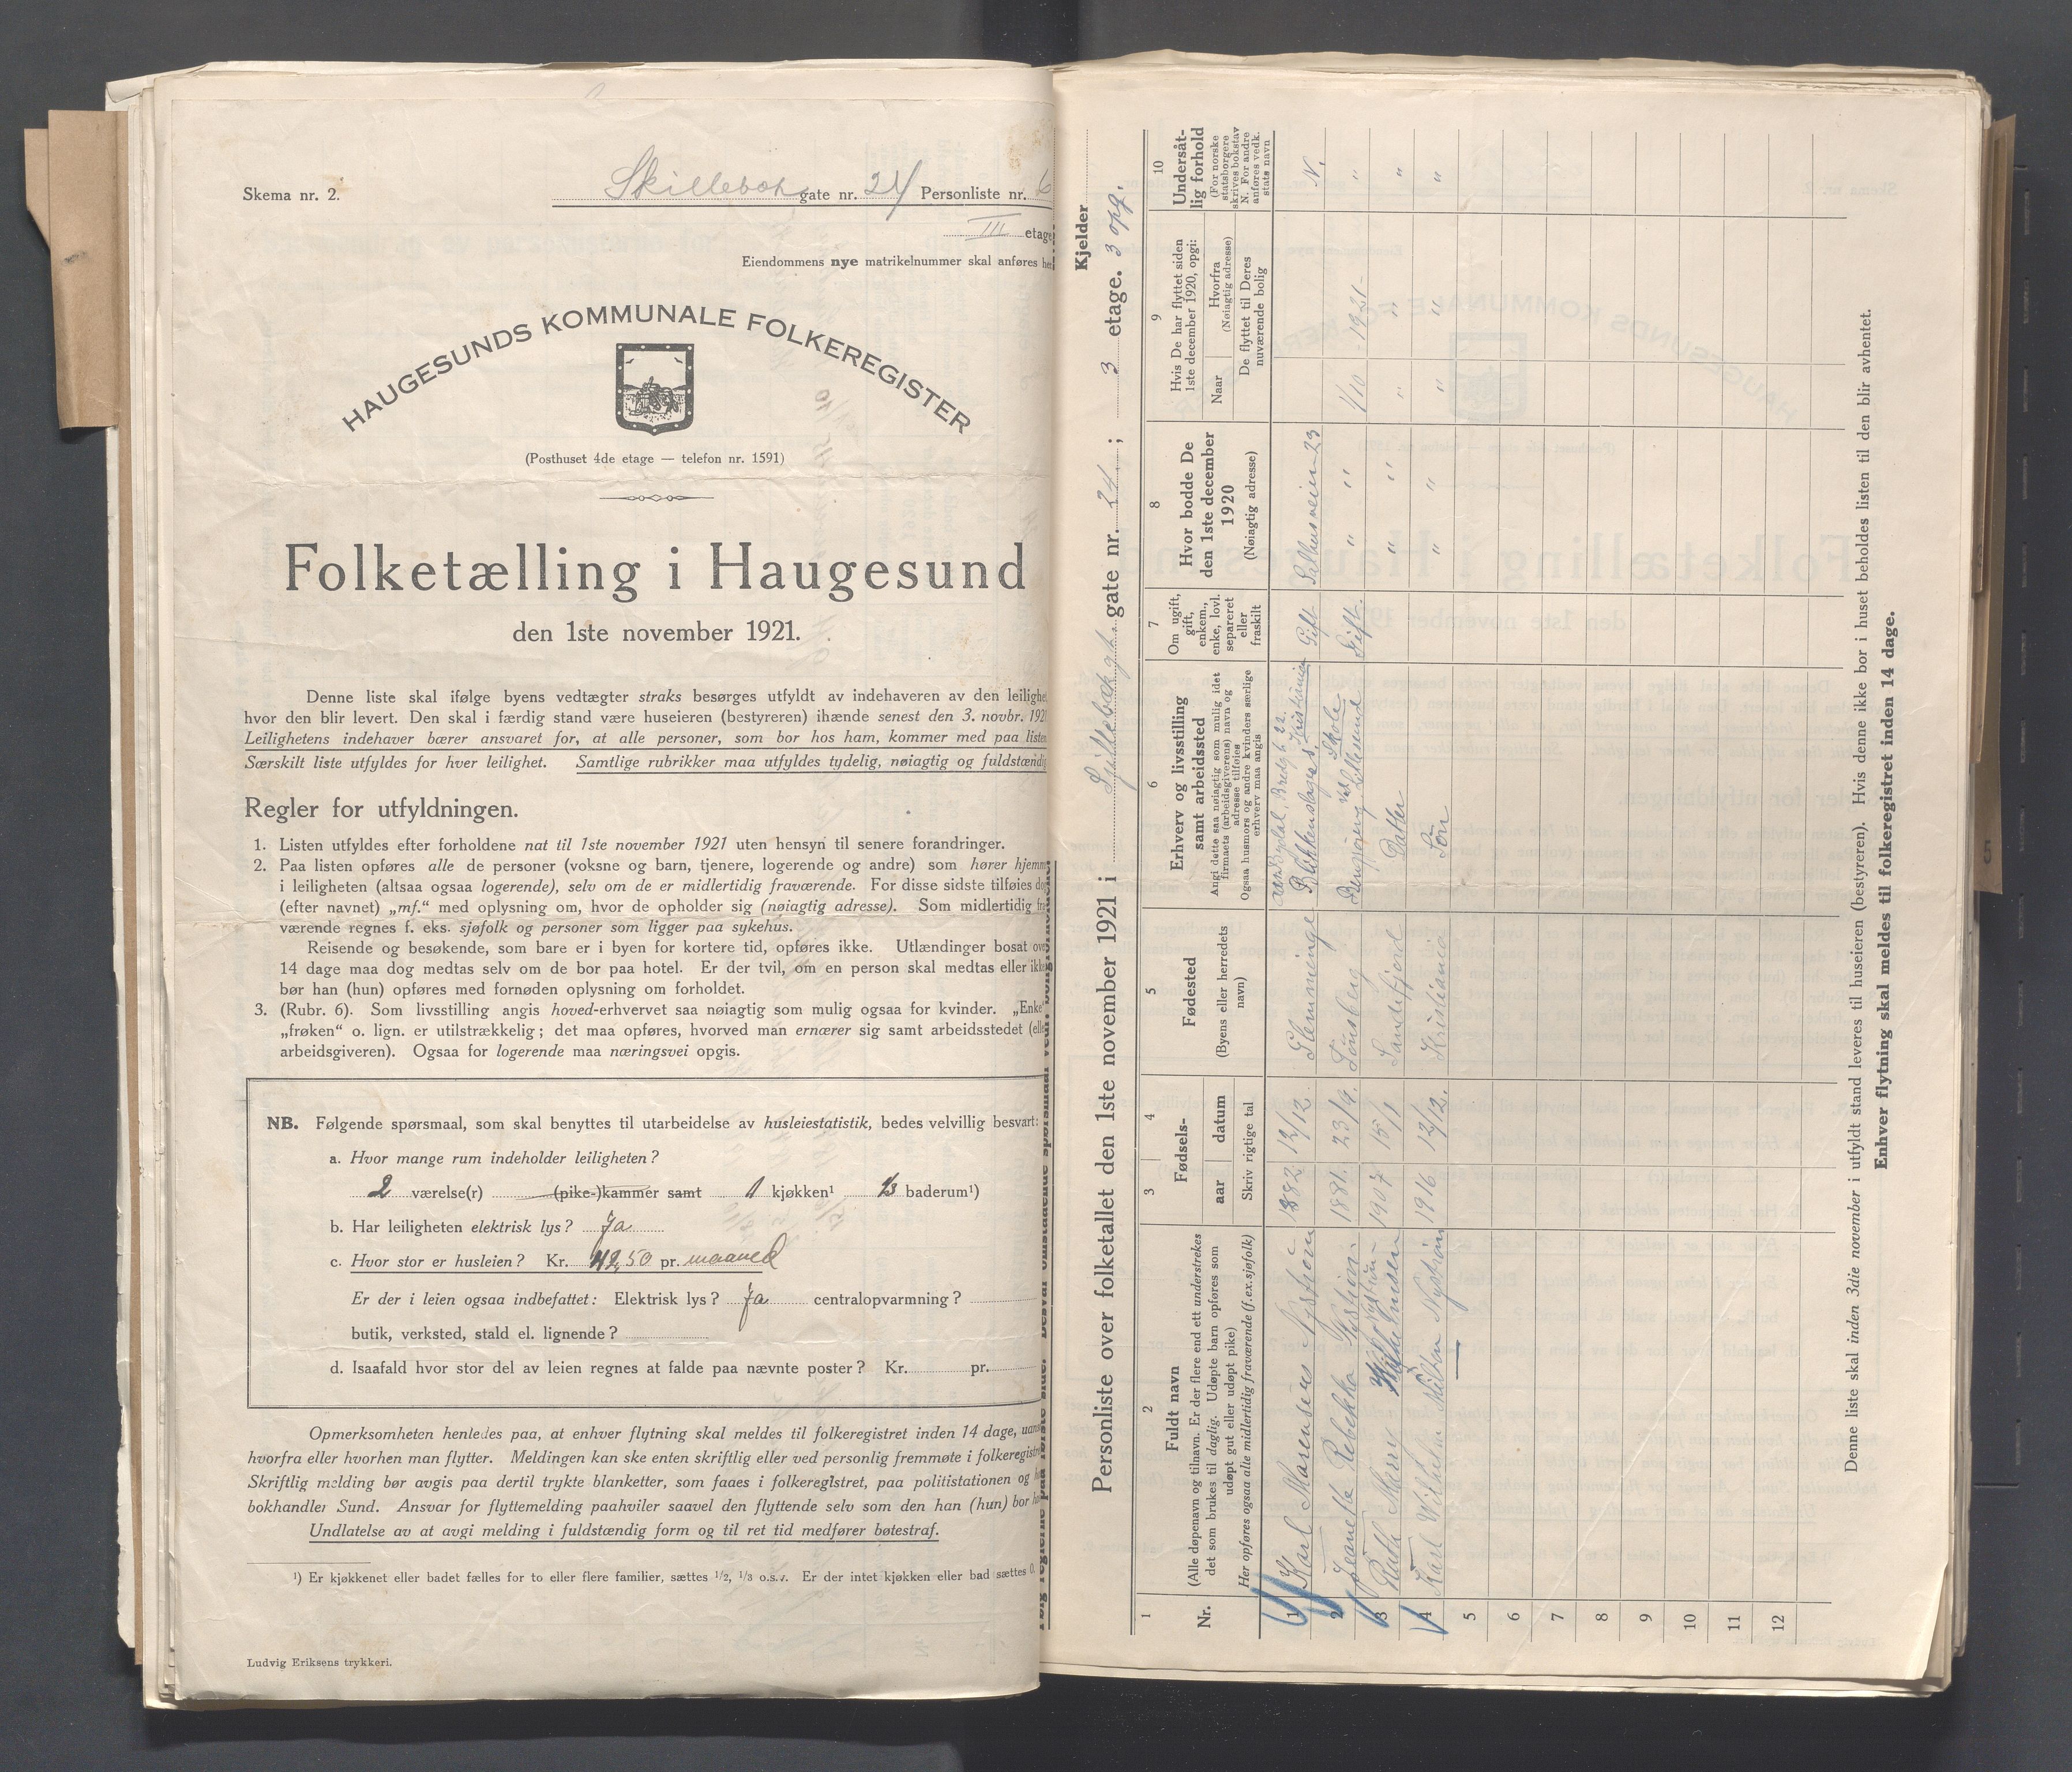 Skema nr. 2.
Skillebæk gate nr. 24 Personliste nr. 6
III etage
Eiendommens nye matrikelnummer skal anføres her
HAUGESUNDS KOMMUNALE FOLKEREGISTER
(Posthuset 4de etage — telefon nr. 1591)
Folketælling i Haugesund
den 1ste november 1921.
Denne liste skal ifølge byens vedtægter straks besørges utfyldt av indehaveren av den leilighet
hvor den blir levert. Den skal i færdig stand være huseieren (bestyreren) ihænde senest den 3. novbr. 192
Leilighetens indehaver bærer ansvaret for, at alle personer, som bor hos ham, kommer med paa listen
Særskilt liste utfyldes for hver leilighet. Samtlige rubrikker maa utfyldes tydelig, nøiagtig og fuldstændig
Regler for utfyldningen.
1. Listen utfyldes efter forholdene nat til 1ste november 1921 uten hensyn til senere forandringer.
2. Paa listen opføres alle de personer (voksne og barn, tjenere, logerende og andre) som hører hjemme
i leiligheten (altsaa ogsaa logerende), selv om de er midlertidig fraværende. For disse sidste tilføies dog
(efter navnet) „mf.“ med oplysning om, hvor de opholder sig (nøiagtig adresse). Som midlertidig fra
værende regnes f. eks. sjøfolk og personer som ligger paa sykehus.
Reisende og besøkende, som bare er i byen for kortere tid, opføres ikke. Utlændinger bosat over
14 dage maa dog medtas selv om de bor paa hotel. Er der tvil, om en person skal medtas eller ikke
bør han (hun) opføres med fornøden oplysning om forholdet.
3. (Rubr. 6). Som livsstilling angis hoved-erhvervet saa nøiagtig som mulig ogsaa for kvinder. „Enke“
„frøken“ o. lign. er utilstrækkelig; det maa opføres, hvorved man ernærer sig samt arbeidsstedet (eller
arbeidsgiveren). Ogsaa for logerende maa næringsvei opgis.
NB. Følgende spørsmaal, som skal benyttes til utarbeidelse av husleiestatistik, bedes velvillig besvart:
a. Hvor mange rum indeholder leiligheten?
2 værelse(r) (pike-)kammer samt 1 kjøkken¹ 1/3 baderum¹)
b. Har leiligheten elektrisk lys? Ja
c. Hvor stor er husleien? Kr. 42,50 pr. maaned
Er der i leien ogsaa indbefattet: Elektrisk lys? Ja centralopvarmning?
butik, verksted, stald el. lignende?
d. Isaafald hvor stor del av leien regnes at falde paa nævnte poster? Kr. pr.
Opmerksomheten henledes paa, at enhver flytning skal meldes til folkeregistret inden 14 dage, uanset
hvorfra eller hvorhen man flytter. Meldingen kan ske enten skriftlig eller ved personlig fremmøte i folkeregistret
Skriftlig melding bør avgis paa dertil trykte blanketter, som faaes i folkeregistret, paa politistationen og hos
bokhandler Sund. Ansvar for flyttemelding paahviler saavel den flyttende selv som den han (hun) bor hos
Undlatelse av at avgi melding i fuldstændig form og til ret tid medfører bøtestraf.
¹) Er kjøkkenet eller badet fælles for to eller flere familier, sættes 1/2, 1/3 o.s.v. Er der intet kjøkken eller bad sættes 0.
Ludvig Eriksens trykkeri.
Kjelder
Personliste over folketallet den 1ste november 1921 i Skillebækgt. gate nr. 24 ; 3 etage. 3 opg.
1 2 3 4 5 6 7 8 9 10
Nr.
Fuldt navn
(Alle døpenavn og tilnavn. Er der flere end ett understrekes
det som brukes til daglig. Udøpte barn opføres som
udøpt gut eller udøpt pike)
Her opføres ogsaa alle midlertidig fraværende (f.ex. sjøfolk)
Fødsels-
aar datum
Skriv rigtige tal
Fødested
(Byens eller herredets
navn)
Erhverv og livsstilling
samt arbeidssted
Angi dette saa nøiagtig som mulig idet
firmaets (arbeidsgiverens) navn og
adresse tilføies
Ogsaa husmors og andre kvinders særlige
erhverv maa angis
Om ugift,
gift,
enkem.,
enke, lovl.
separeret
eller
fraskilt
Hvor bodde De
den 1ste december
1920
(Nøiagtig adresse)
Hvis De har flyttet siden
1ste december 1920, opgi:
Naar
Hvorfra
(Nøiagtig adresse)
De flyttet til Deres
nuværende bolig
Undersåt-
lig forhold
(For norske
statsborgere
skrives bokstav
N. For andre
anføres vedk.
stats navn
1 Karl Marensius Nystrøm 1882 12/12 Glemminge Blikkenslager i Kristiania Gift Solhusveien 23 N.
2 Jeanette Rebekka Nystrøm 1881. 23/9. Tønsberg Rengjøring ved Lillesund Skole Gift. " " 1/10 - 1921 - "
3 Ruth Mary Nystrøm 1907 15/1 Sandefjord Datter " " " " "
4 Karl Wilhelm Milton Nystrøm 1916 12/12. Kristiania Søn " " " " "
5
6
7
8
9
10
11
12
Denne liste skal inden 3die november i utfyldt stand leveres til huseieren (bestyreren). Hvis denne ikke bor i huset beholdes listen til den blir avhentet.
Enhver flytning skal meldes til folkeregistret inden 14 dage.